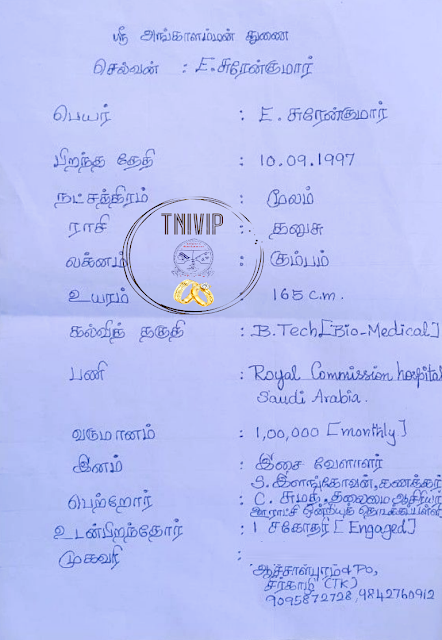 ஸ்ரீ அங்காளம்மன் துணை
செல்வன் : E. சுரேன்குமார்
பெயர் : E. சுரேன்குமார்
பிறந்த தேதி : 10.09.1997
நட்சத்திரம் : மூலம்
TNIVIP
ராசி : தனுசு
லக்னம் : கும்பம்
உயரம் : 165 c.m.
கல்வித் தகுதி : B.Tech [Bio-Medical]
பணி : Royal Commission hospital
Saudi Arabia.
வருமானம் : 1,00,000 [monthly]
இனம் : இசை வேளாளர்
S. இளங்கோவன், கணக்கர்
பெற்றோர் : C. சுமதி, தலைமை ஆசிரியர்
ஊராட்சி ஒன்றியத் தொடக்கப்பள்ளி
உடன்பிறந்தோர் : 1 சகோதரர் [Engaged]
முகவரி :
ஆச்சாள்புரம் & Po,
சீர்காழி (TK)
9095872728, 9842760912